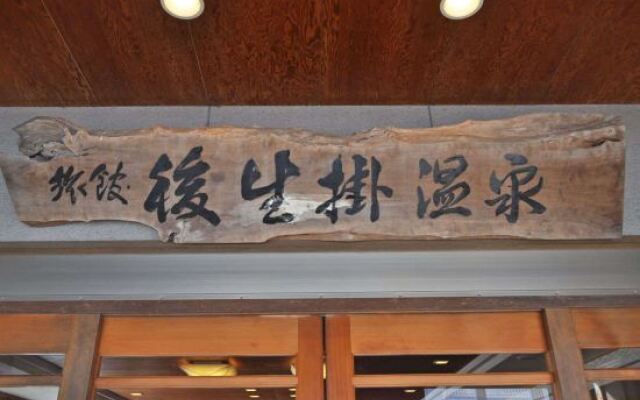 旅館 後生掛温泉